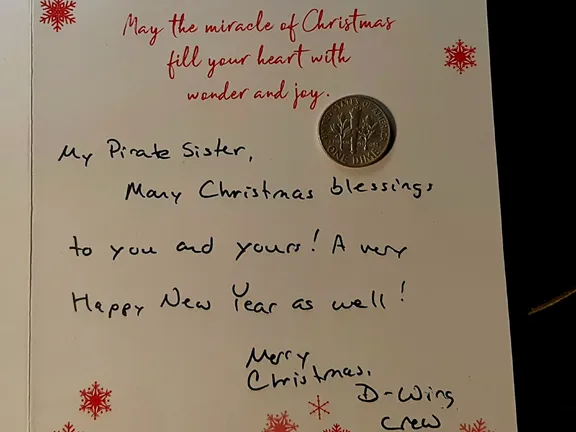 May the miracle of Christmas
fill your heart with
wonder and joy.
STATES OF AMERICA
ONE DIME
My Pirate Sister,
Many Christmas blessings
to you and yours! A very
Happy New Year as well!
Merry
Christmas,
D-Wing
Crew